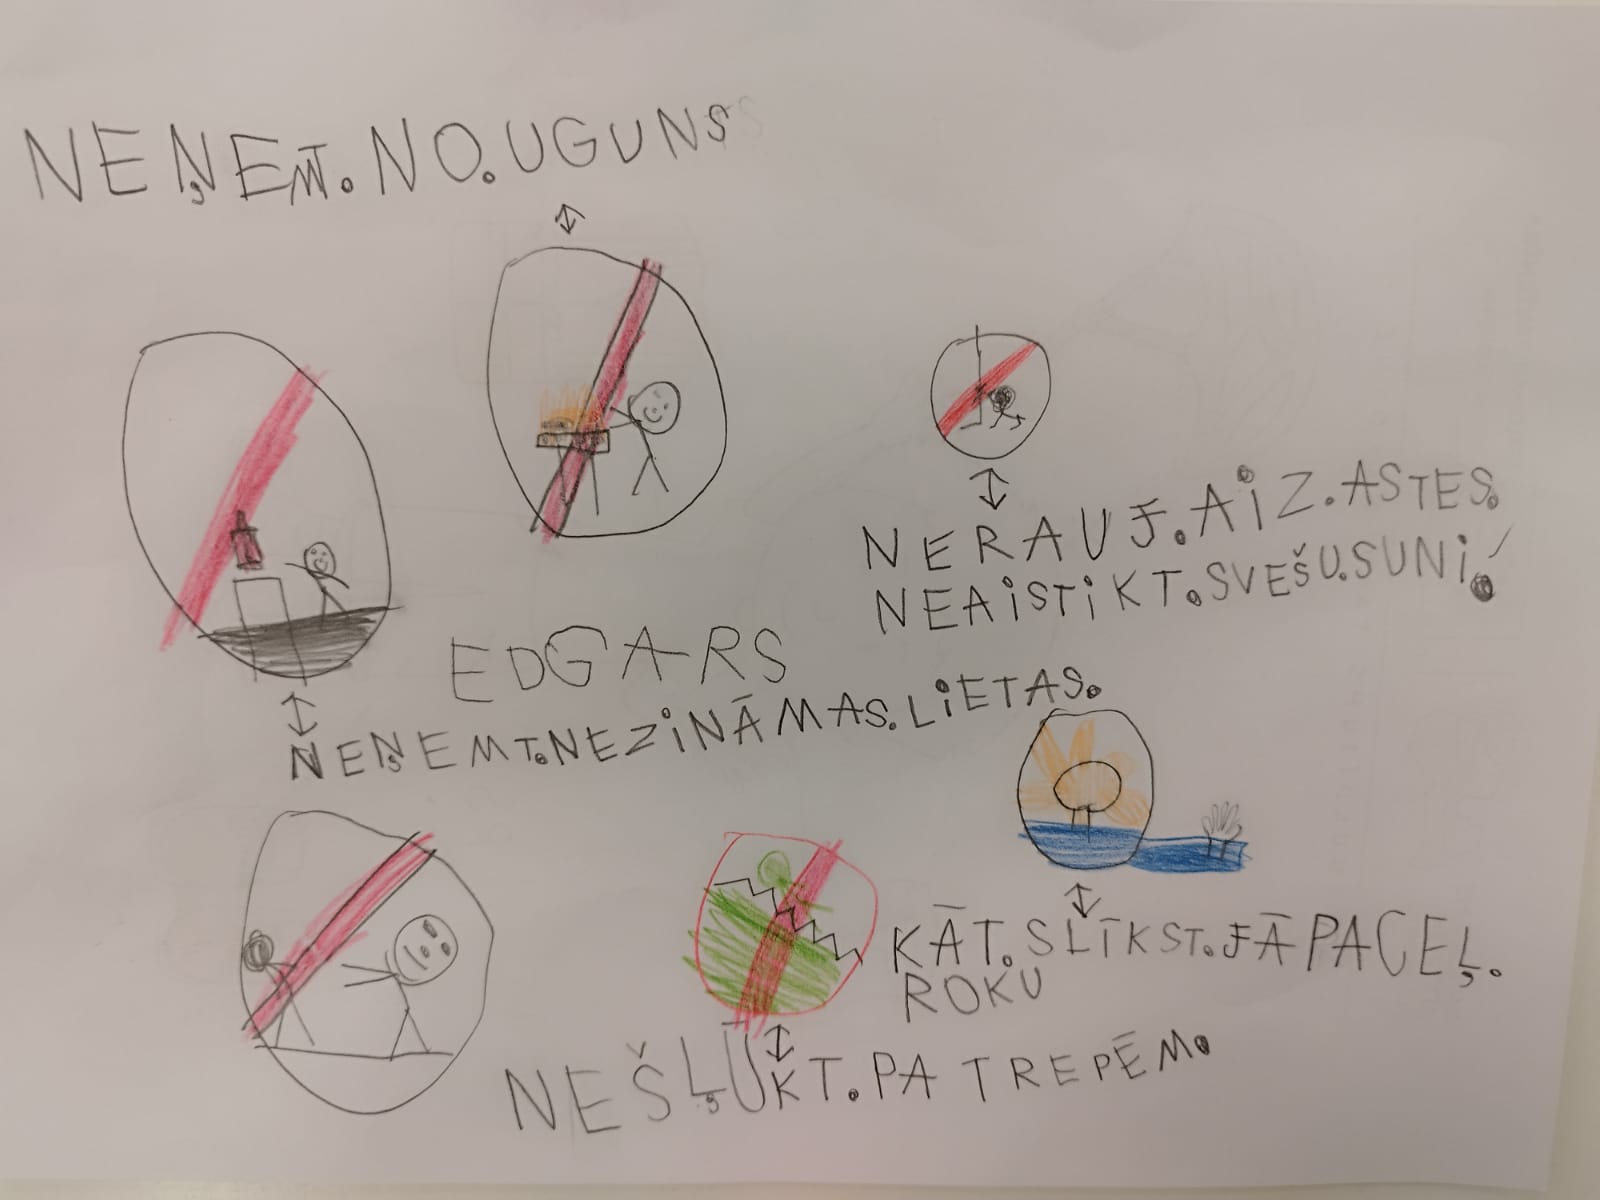 NEŅEMT.NO.UGUNS
NERAUJ.AIZ.ASTES.
NEAISTIKT.SVEŠU.SUNI!
EDGARS
NEŅEMT.NEZINĀMAS.LIETAS.
KĀT.SLĪKST.JĀPACEĻ.
ROKU
NEŠĻŪKT.PA TREPĒM.